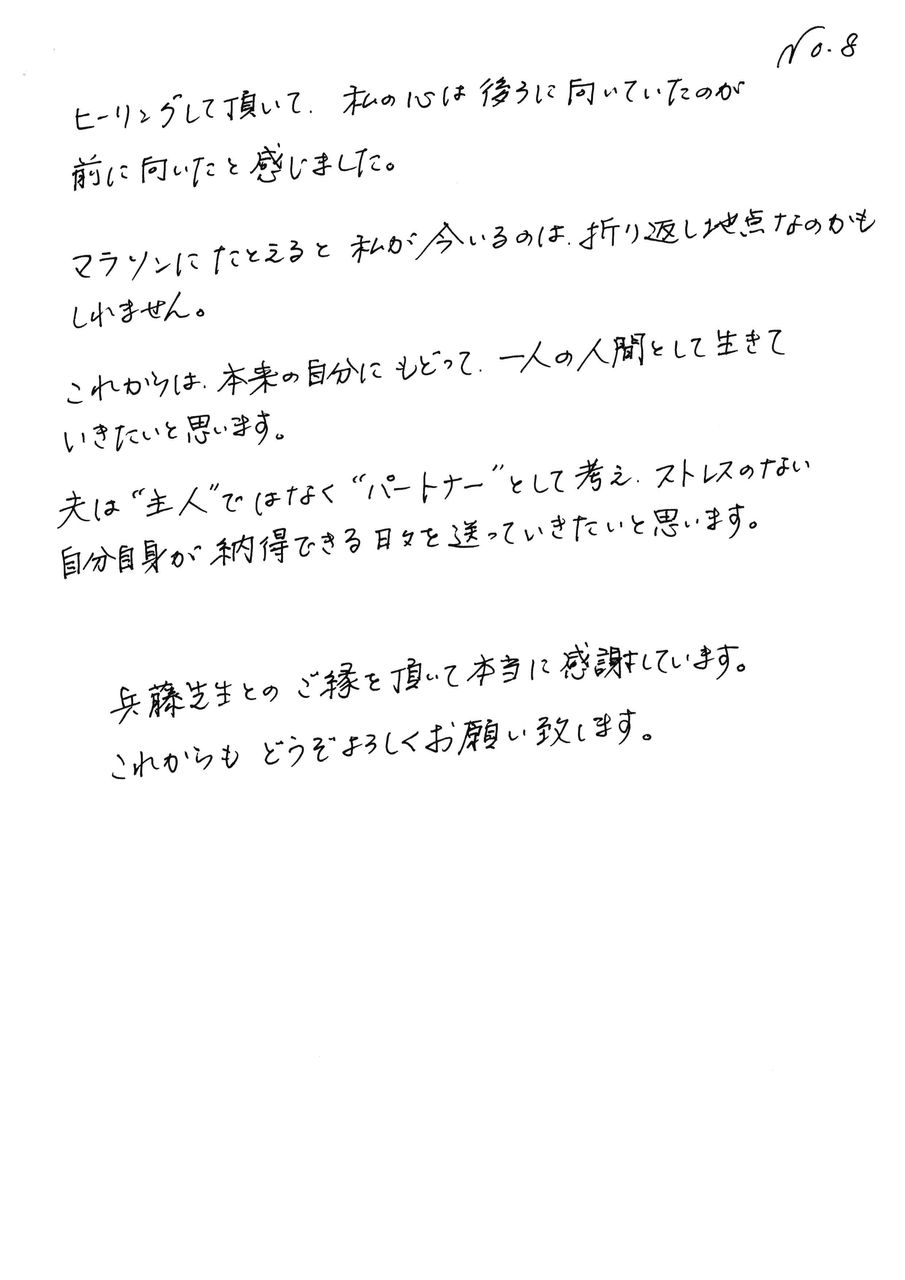 No.8
ヒーリングして頂いて、私の心は後ろに向いていたのが
前に向いたと感じました。
マラソンにたとえると私が今いるのは、折り返し地点なのかも
しれません。
これからは、本来の自分にもどって、一人の人間として生きて
いきたいと思います。
夫は“主人”ではなく“パートナー”として考え、ストレスのない
自分自身が納得できる日々を送っていきたいと思います。
兵藤先生とのご縁を頂いて本当に感謝しています。
これからもどうぞよろしくお願い致します。